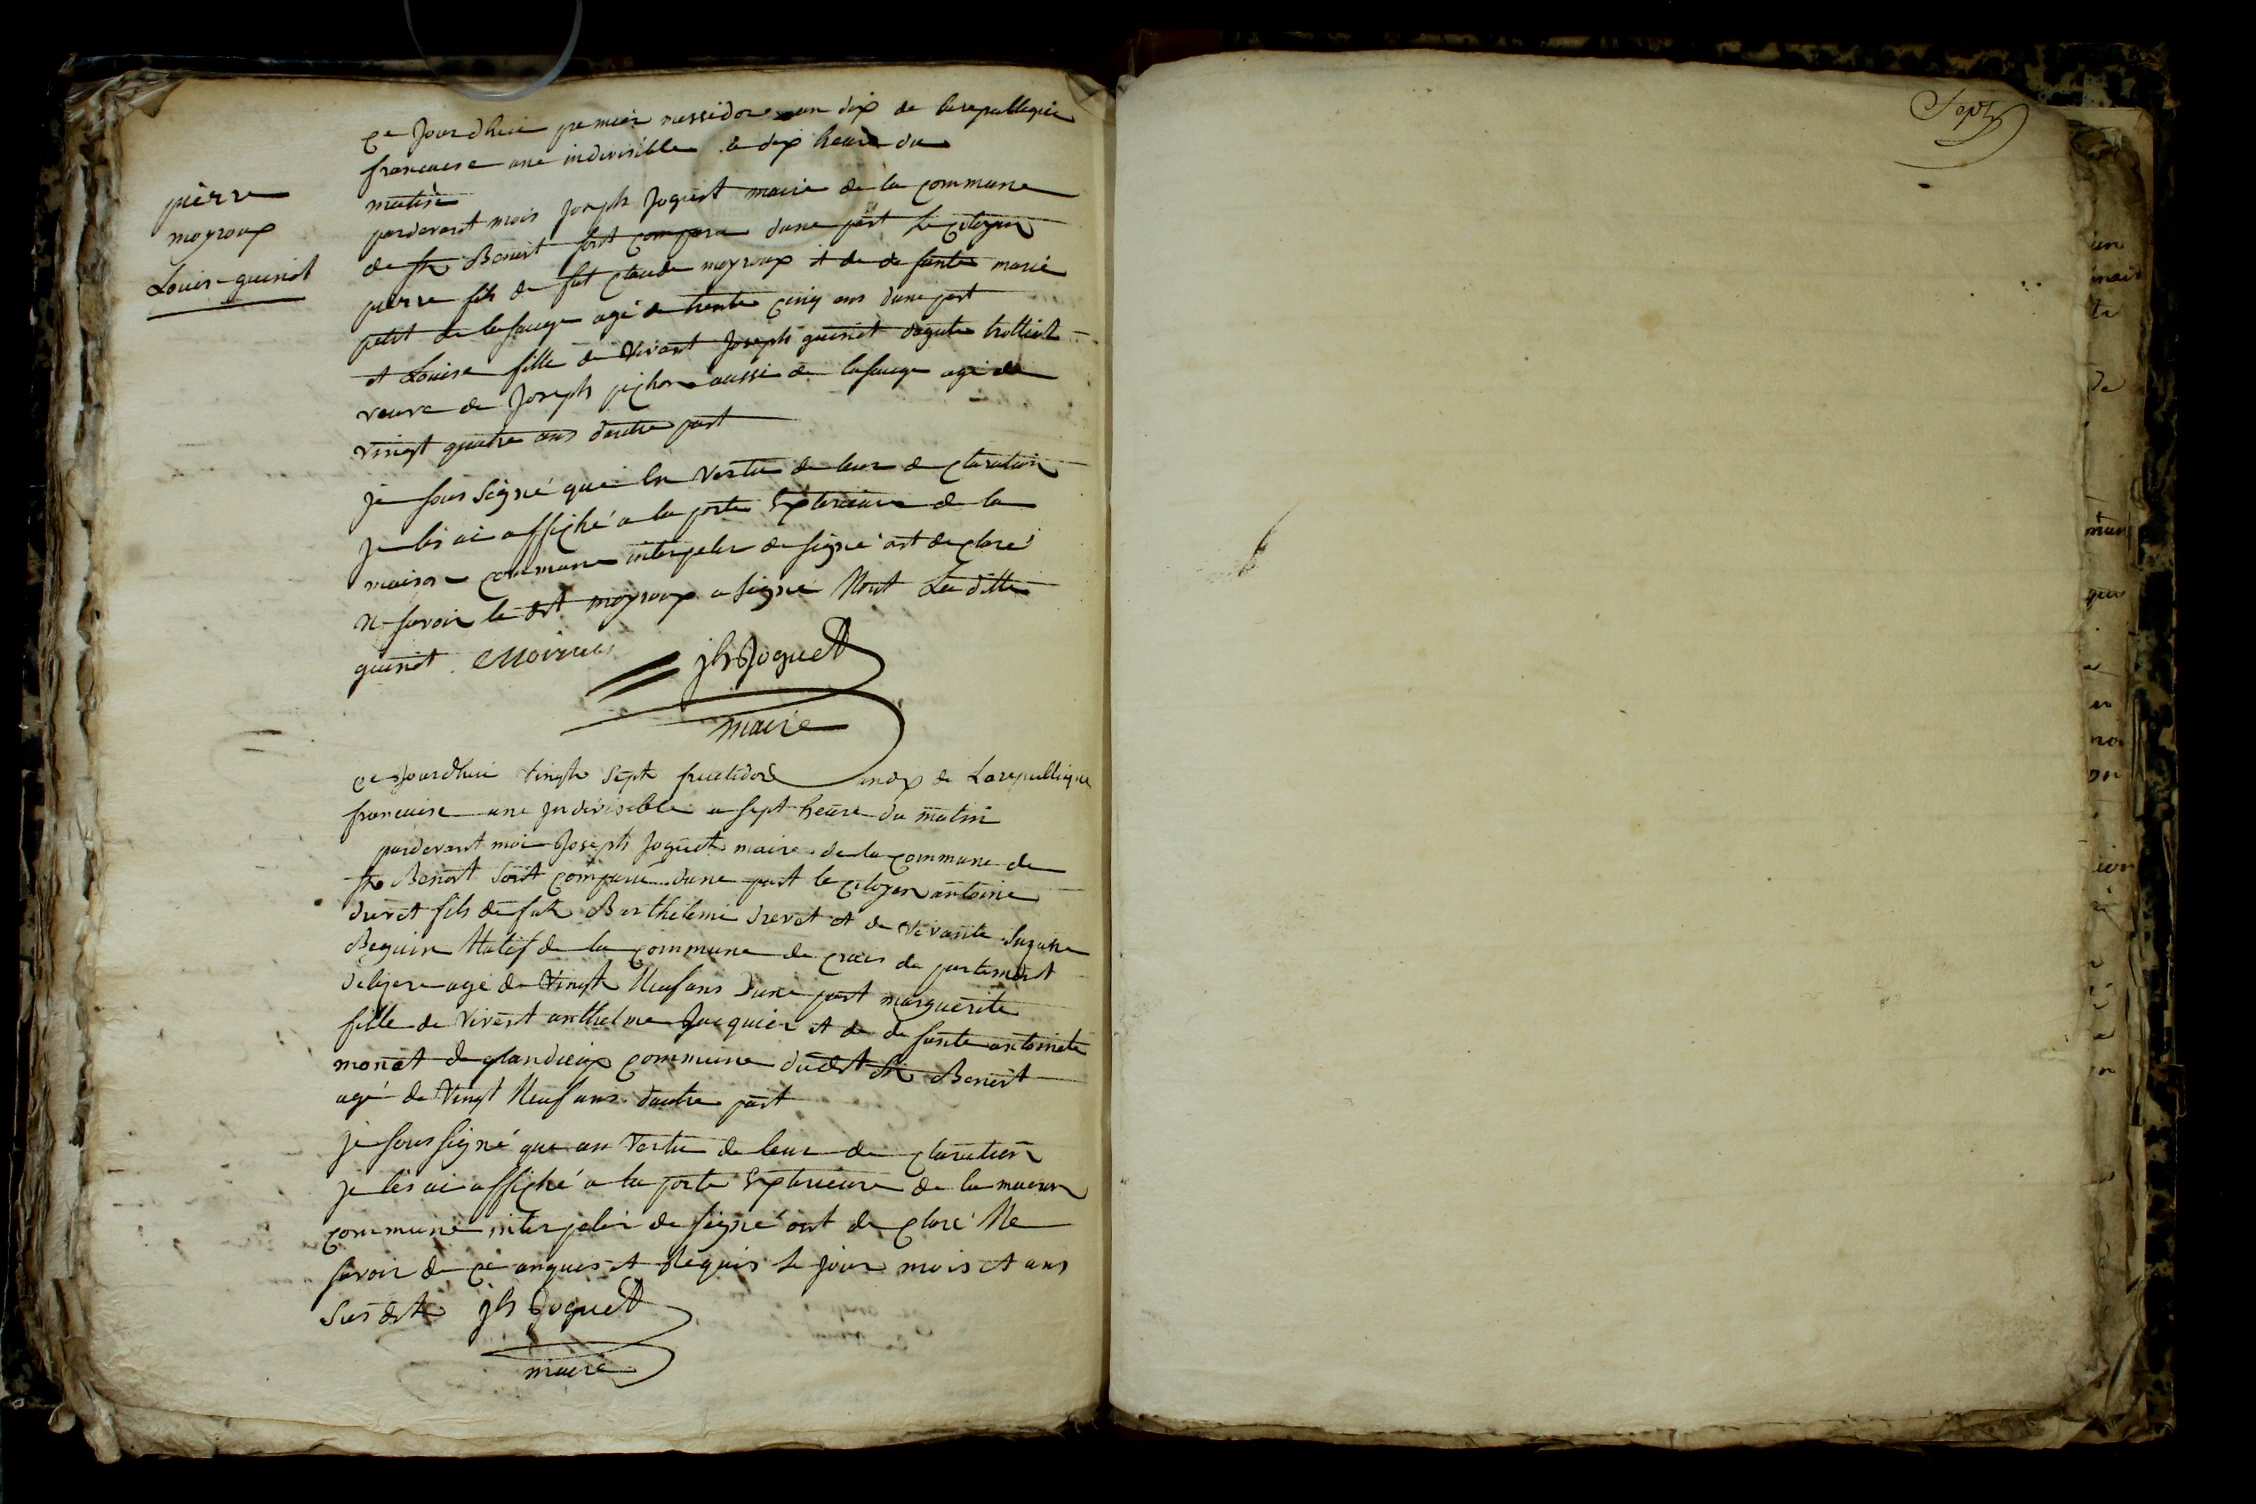 pierre
moyroux
Louise guinet
ce Jourdhui premier messidor an dix de la republique
francaise une indivisible a dix heure du
matin
pardevant mois Joseph Joguet maire de la commune
de st Benoit sont comparu dune part le citoyen
pierre fils de fut Claude moyroux et de defunte marie
petit de lasauge agé de trente cinq ans dune part
et Louise fille de vivant Joseph guinet dagate trolliet
veuve de Joseph pichon aussi de lasauge agé de
vingt quatre ans dautre part
je sous Signé que en vertu de leur declaration
je les ai affiché a la porte Exterieure de la
maison commune interpeler de signé ont declaré
ne savoir le dit moyroux a signé Nont La ditte
guinet
jh Joguet
maire
ce Jourdhui vingt sept fructidor an dix de La republique
francaise une Indivisible a sept heure du matin
pardevant moi Joseph Joguet maire de la commune de
st Benoit sont comparu dune part le citoyen antoine
drevet fils de fut Barthelemi drevet et de vivante Suzanne
Beguin Natif de la commune de departement
de agé de vingt Neuf ans dune part marguerite
fille de vivant anthelme Jacquier et de defunte antoinete
monet de glandieux commune dudit st Benoit
agé de vingt Neuf ans dautre part
je sous signé que en vertu de leur declaration
je les ai affiché a la porte Exterieure de la maison
commune interpeler de signé ont declaré Ne
savoir de ce enquis et Requis le jour mois et ans
susdit jh Joguet
maire
Sept